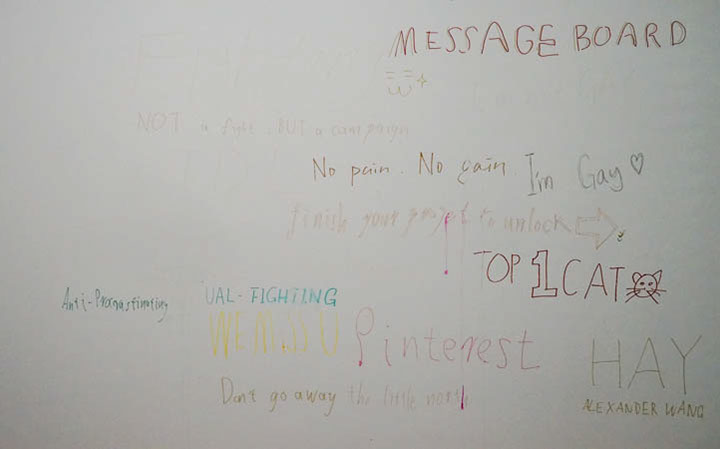 MESSAGE BOARD
NOT a fight. BUT a campaign
No pain. No gain.
I'm Gay
finish your project to unlock
TOP 1 CAT
Anti-Procrastinating
UAL-FIGHTING
WE MISS U
Pinterest
HAY
Don't go away the little north
ALEXANDER WANG